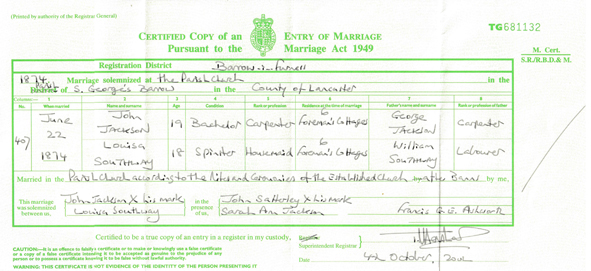 (Printed by authority of the Registrar General)
TG681132
CERTIFIED COPY of an ENTRY OF MARRIAGE
Pursuant to the Marriage Act 1949
M. Cert.
S.R./R.B.D.& M.
Registration District Barrow-in-Furness
1874 Marriage solemnized at the Parish Church in the
of S. George's Barrow in the County of Lancaster
Columns:- 1 2 3 4 5 6 7 8
No. When married Name and surname Age Condition Rank or profession Residence at the time of marriage Father's name and surname Rank or profession of father
407 June 22 1874
John JACKSON 19 Bachelor Carpenter 6 Foreman's Cottages George JACKSON Carpenter
Louisa SOUTHWAY 18 Spinster Housemaid 6 Foreman's Cottages William SOUTHWAY Labourer
Married in the Parish Church according to the Rites and Ceremonies of the Established Church after Banns by me,
This marriage was solemnized between us, John Jackson X his mark Louisa Southway
in the presence of us, John Satterley X his mark Sarah Ann Jackson
Francis G.E. Ashworth
Certified to be a true copy of an entry in a register in my custody,
Superintendent Registrar
4th October, Date
CAUTION:—It is an offence to falsify a certificate or to make or knowingly use a false certificate
or a copy of a false certificate intending it to be accepted as genuine to the prejudice of any
person or to possess a certificate knowing it to be false without lawful authority.
WARNING: THIS CERTIFICATE IS NOT EVIDENCE OF THE IDENTITY OF THE PERSON PRESENTING IT